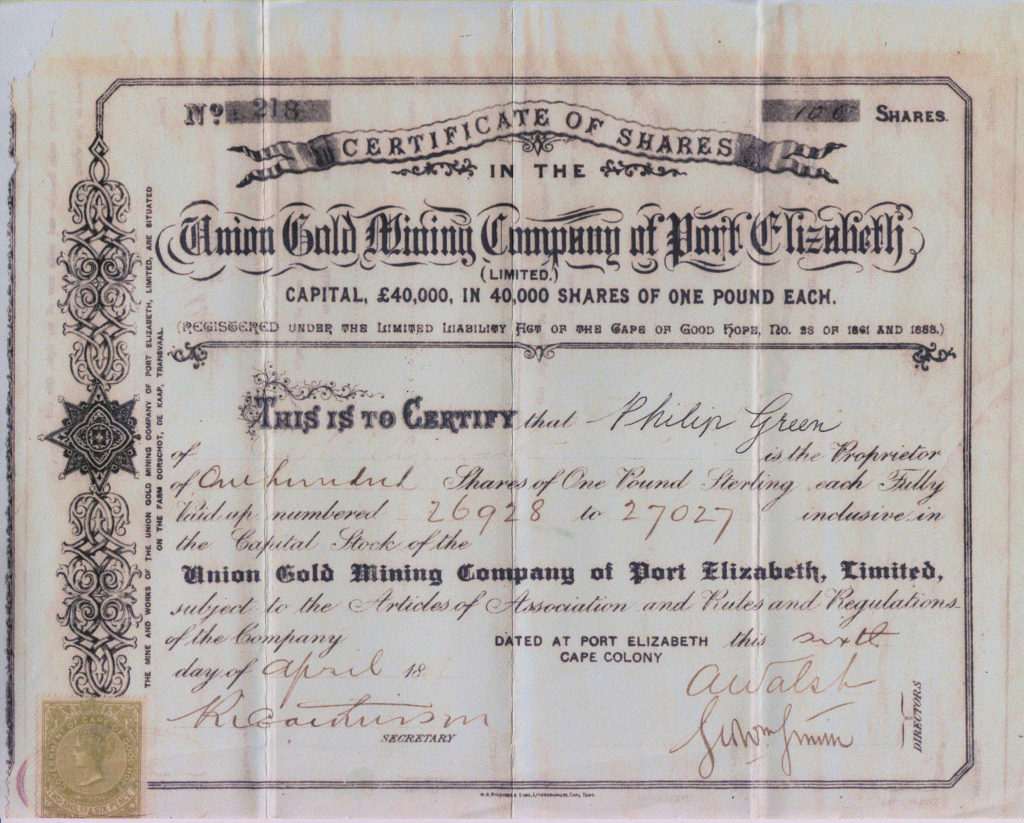 No. 218
100 SHARES.
CERTIFICATE OF SHARES
IN THE
Union Gold Mining Company of Port Elizabeth
(LIMITED.)
CAPITAL, £40,000, IN 40,000 SHARES OF ONE POUND EACH.
(REGISTERED UNDER THE LIMITED LIABILITY ACT OF THE CAPE OF GOOD HOPE, No. 23 OF 1861 AND 1888.)
THE MINE AND WORKS OF THE UNION GOLD MINING COMPANY OF PORT ELIZABETH, LIMITED, ARE SITUATED
ON THE FARM OORSCHOT, DE KAAP, TRANSVAAL.
THIS IS TO CERTIFY that Philip Green
of is the Proprietor
of One hundred Shares of One Pound Sterling each Fully
Paid up numbered 26928 to 27027 inclusive in
the Capital Stock of the
Union Gold Mining Company of Port Elizabeth, Limited,
subject to the Articles of Association and Rules and Regulations
of the Company DATED AT PORT ELIZABETH this sixth
CAPE COLONY
day of April 18
A Walsh
SECRETARY
DIRECTORS
TWO SHILLS & SIX PENCE